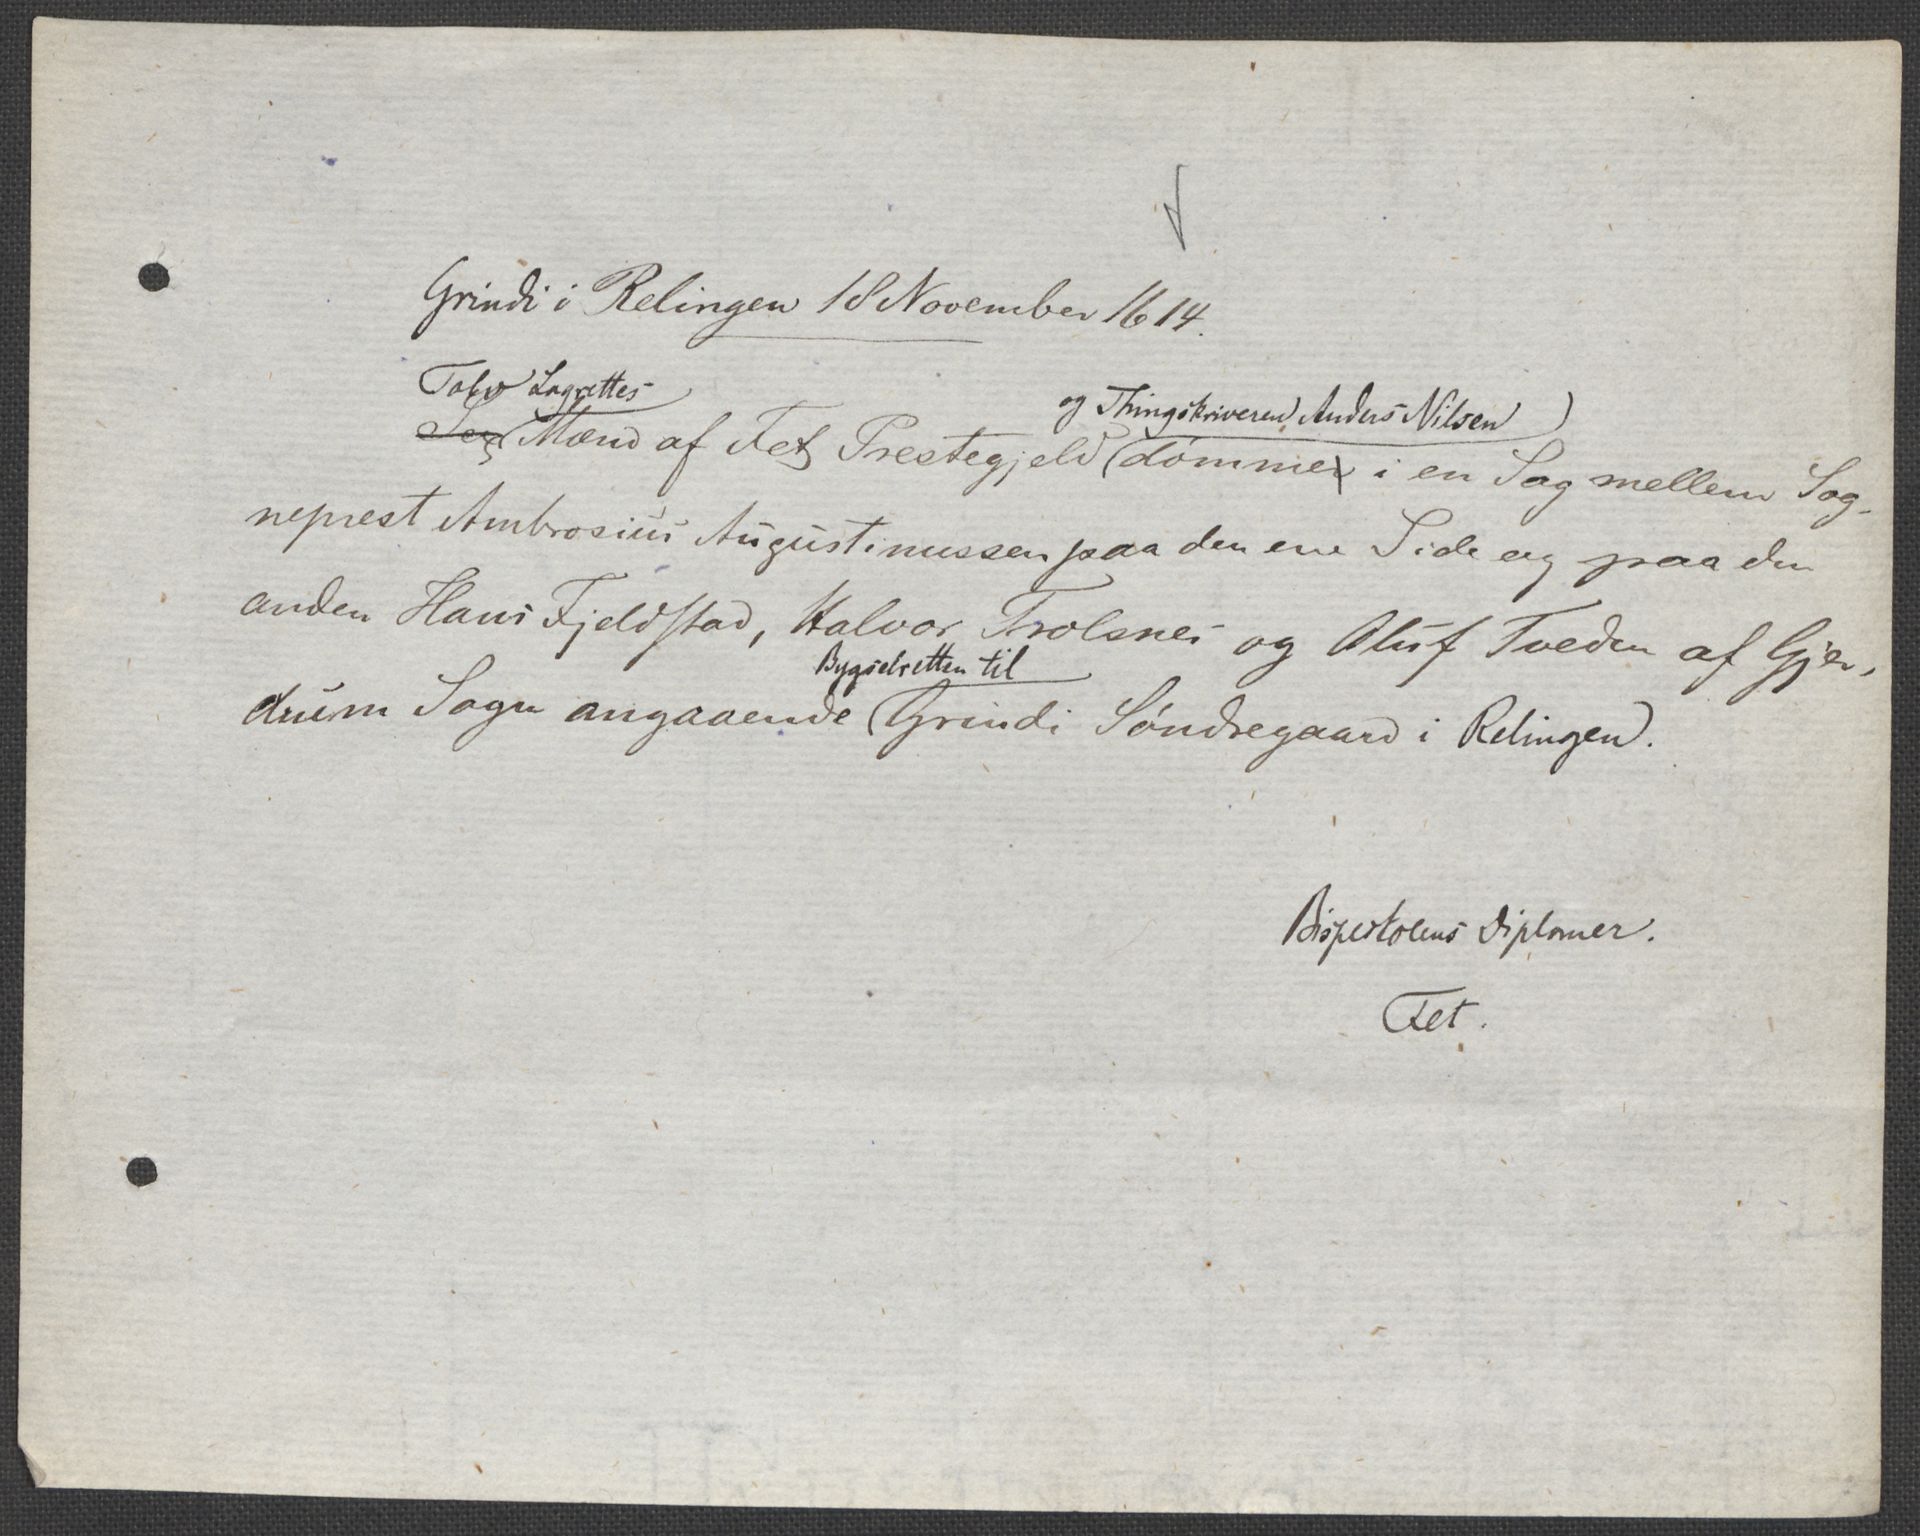 Grindi i Relingen 18 November 1614.
Tolv Lagrettes
og Thingskriveren Anders Nilsen
Sex Mænd af Fets Prestegjeld dømmer i en Sag mellem Sog-
neprest Ambrosius Augustinussen paa den ene Side og paa den
anden Hans Fjeldstad, Halvor Trolsnes og Oluf Tveden af Gjer-
Bygselretten til
drum Sogn angaaende Grindi Søndregaard i Relingen.
Bispestolens Diplomer.
Fet.